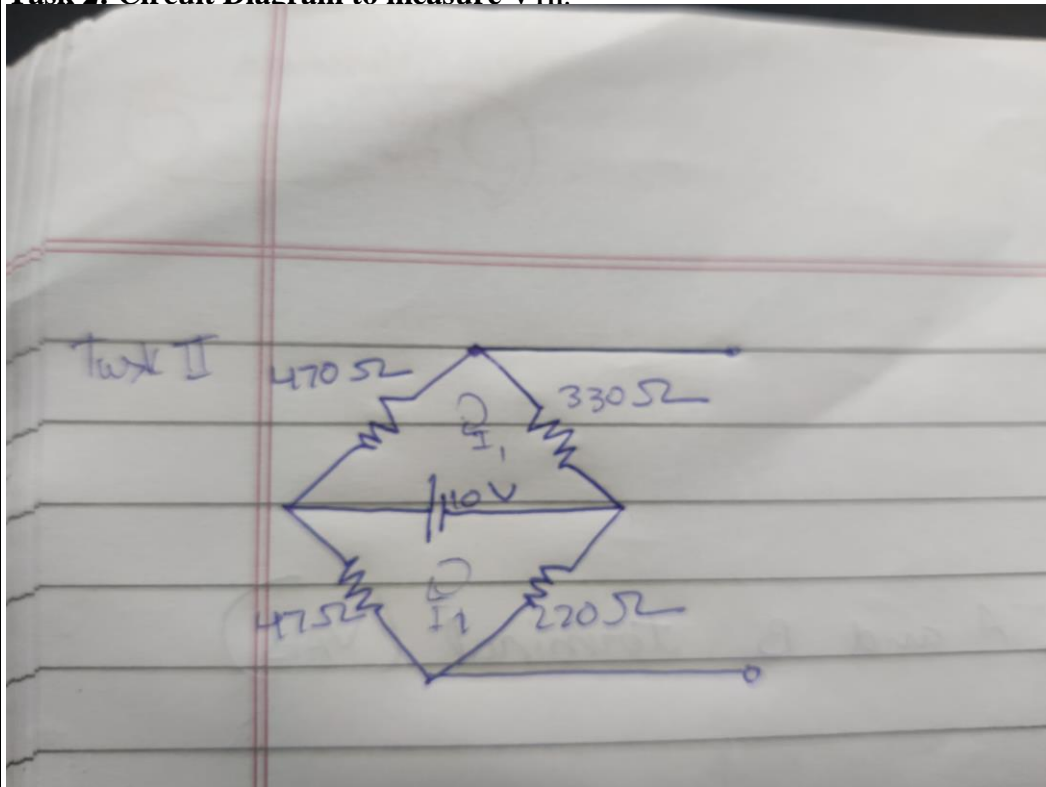 Task 2: Circuit Diagram to measure VTH:
Task II
470 Ω
330 Ω
I1
10 V
47Ω
I1
220 Ω
A and B Terminal